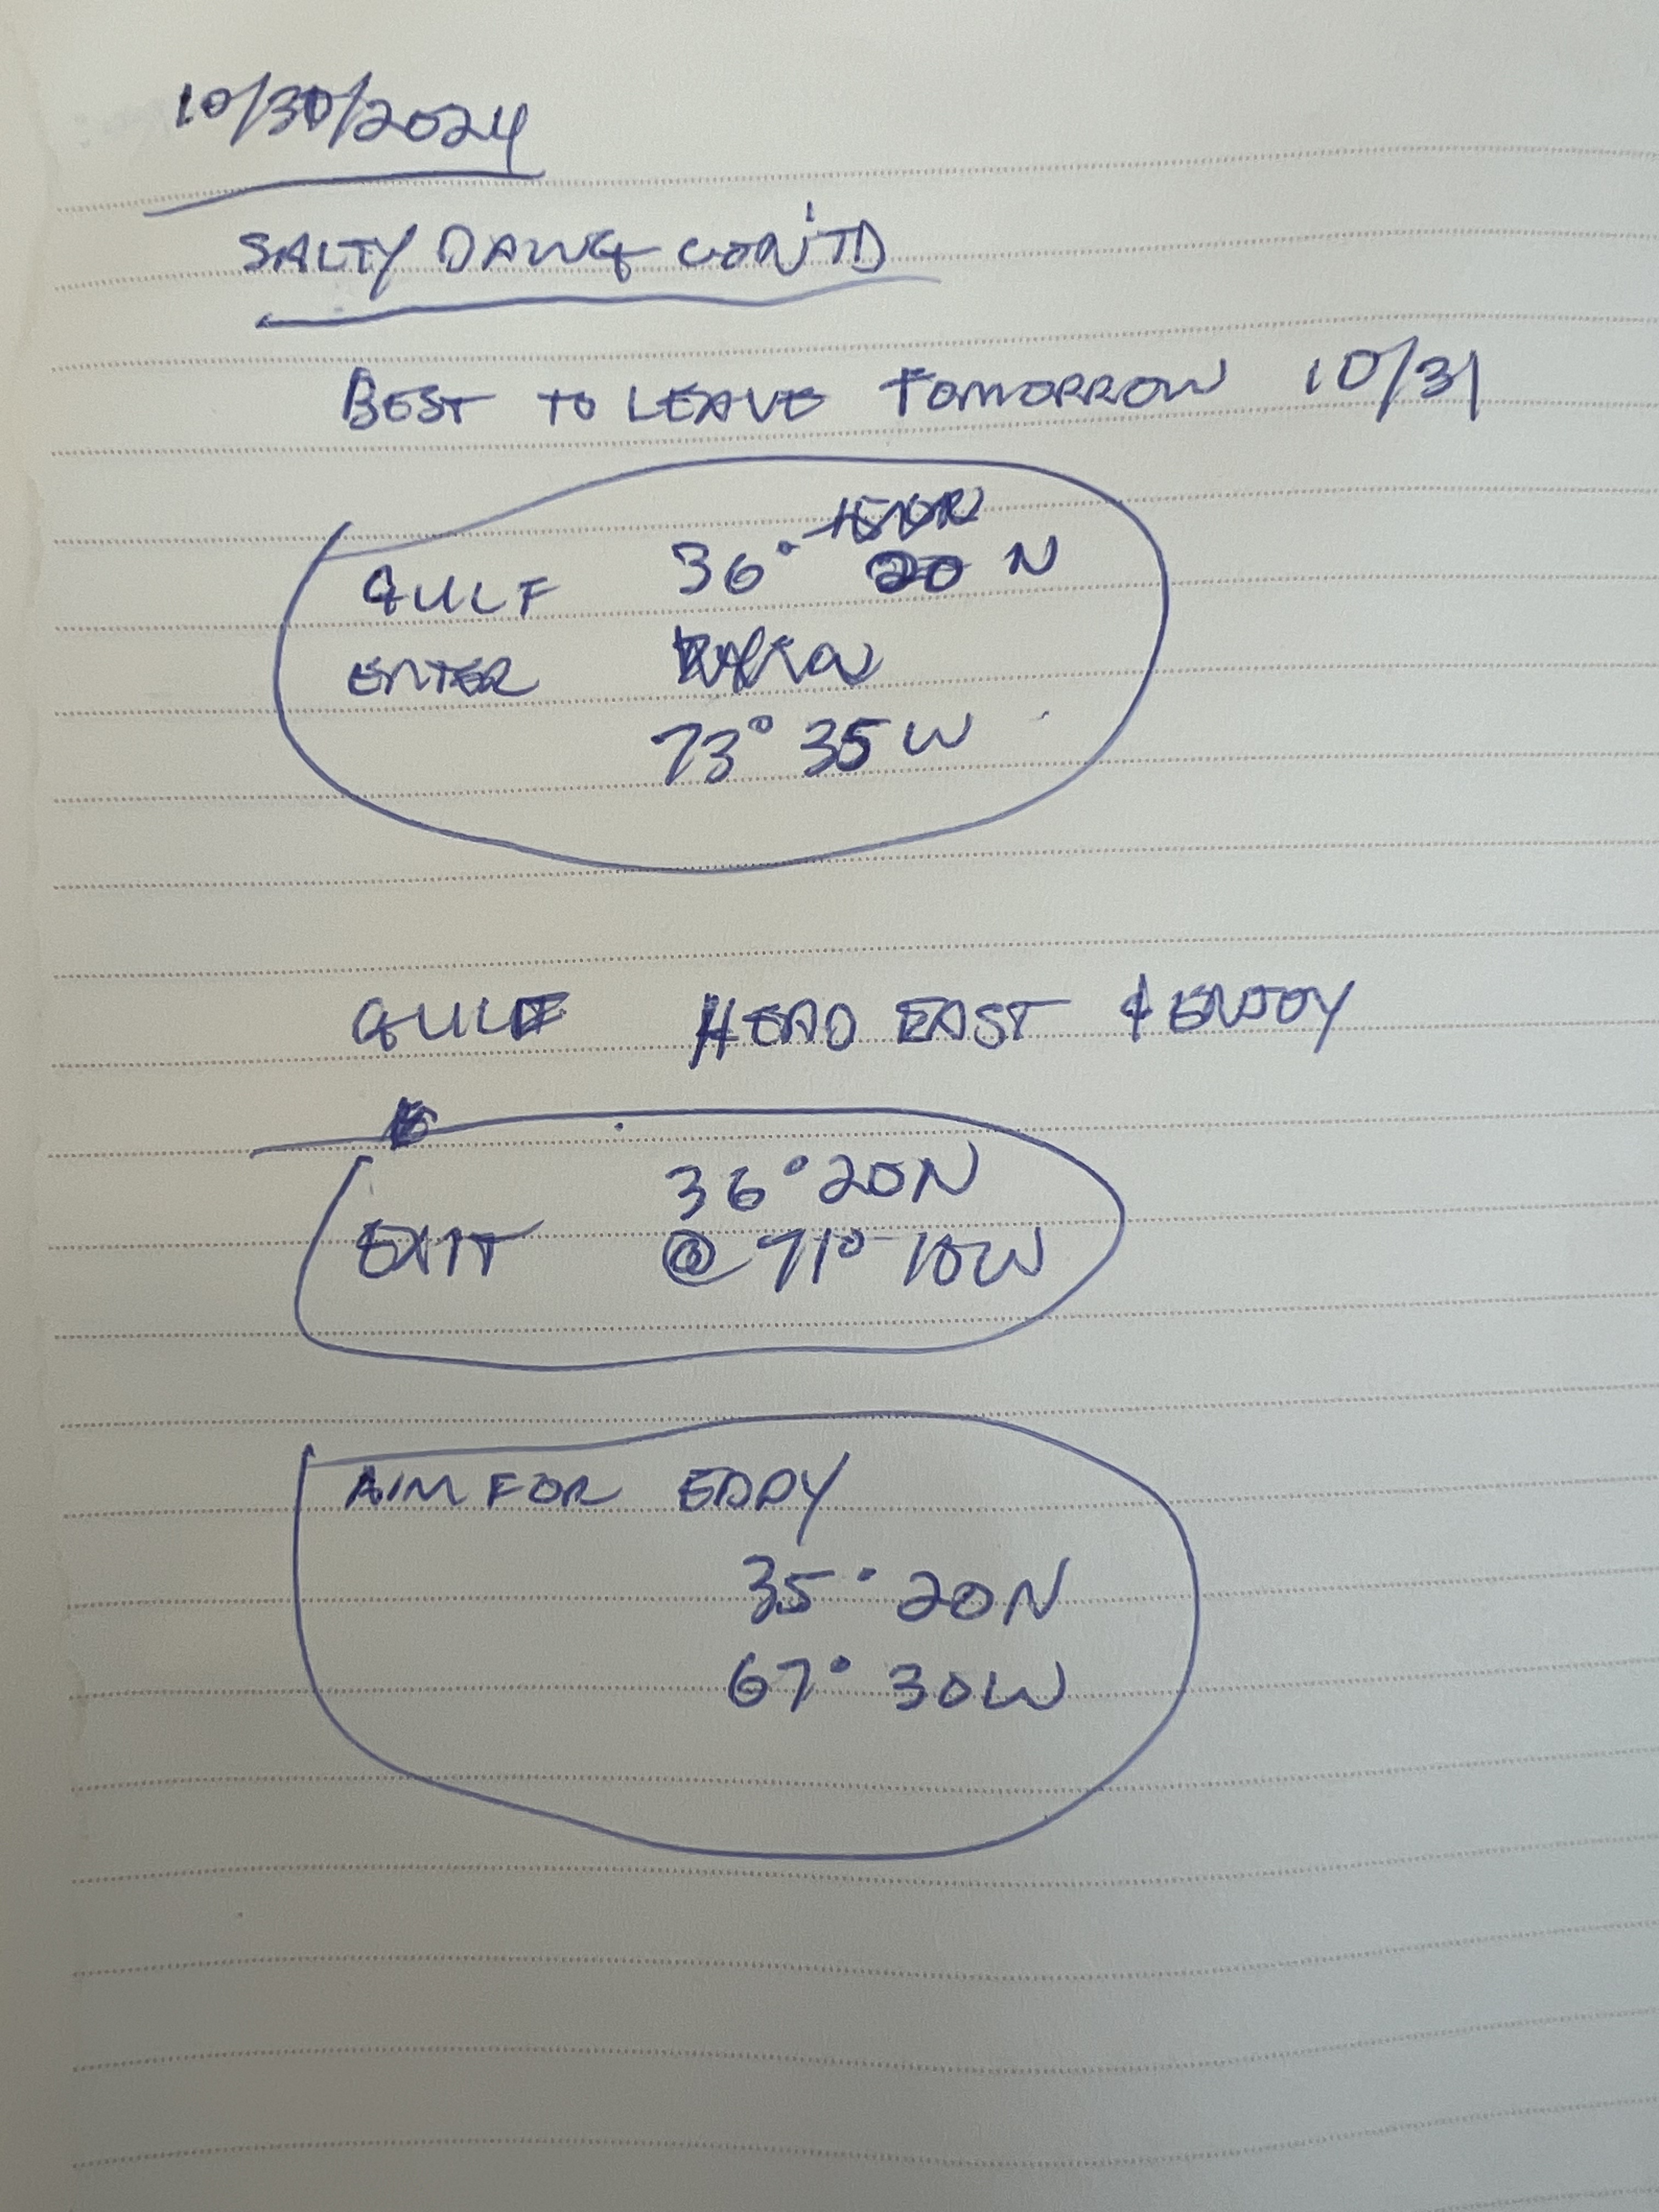 10/30/2024
SALTY DAWG CON'TD
BEST TO LEAVE TOMORROW 10/31
GULF 36° 20 N
ENTER
73° 35 W
GULF HEAD EAST & ENJOY
36° 20 N
EXIT @ 71° 10 W
AIM FOR EDDY
35° 20 N
67° 30 W